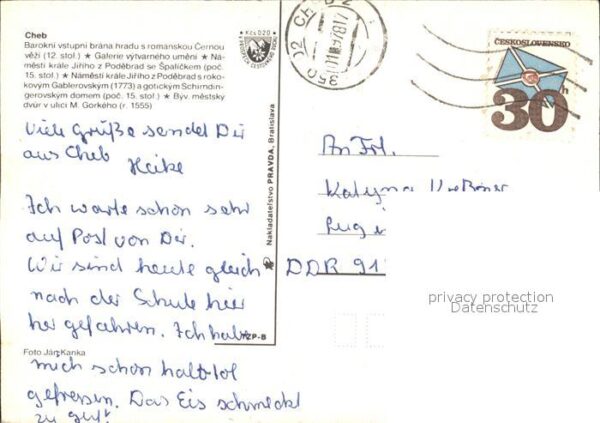 Cheb
Barokní vstupní brána hradu s románskou Černou
věží (12. stol.) ★ Galerie výtvarného umění ★ Ná-
městí krále Jiřího z Poděbrad se Špalíčkem (poč.
15. stol.) ★ Náměstí krále Jiřího z Poděbrad s roko-
kovým Gablerovským (1773) a gotickým Schirndin-
gerovským domem (poč. 15. stol.) ★ Býv. městský
dvůr v ulici M. Gorkého (r. 1555)
Kčs 0,20
Viele Grüße sendet Dir
aus Cheb
Heike
Ich warte schon sehr
auf Post von Dir.
Wir sind heute gleich
nach der Schule hier
her gefahren. Ich habe
Foto Ján Kanka
mich schon halbtot
gefressen. Das Eis schmeckt
zu gut!
Nakladateľstvo PRAVDA, Bratislava
VZP-B
350 02 CHEB 2
ČESKOSLOVENSKO
30 h
An Frl.
Katyna
DDR 91
privacy protection
Datenschutz